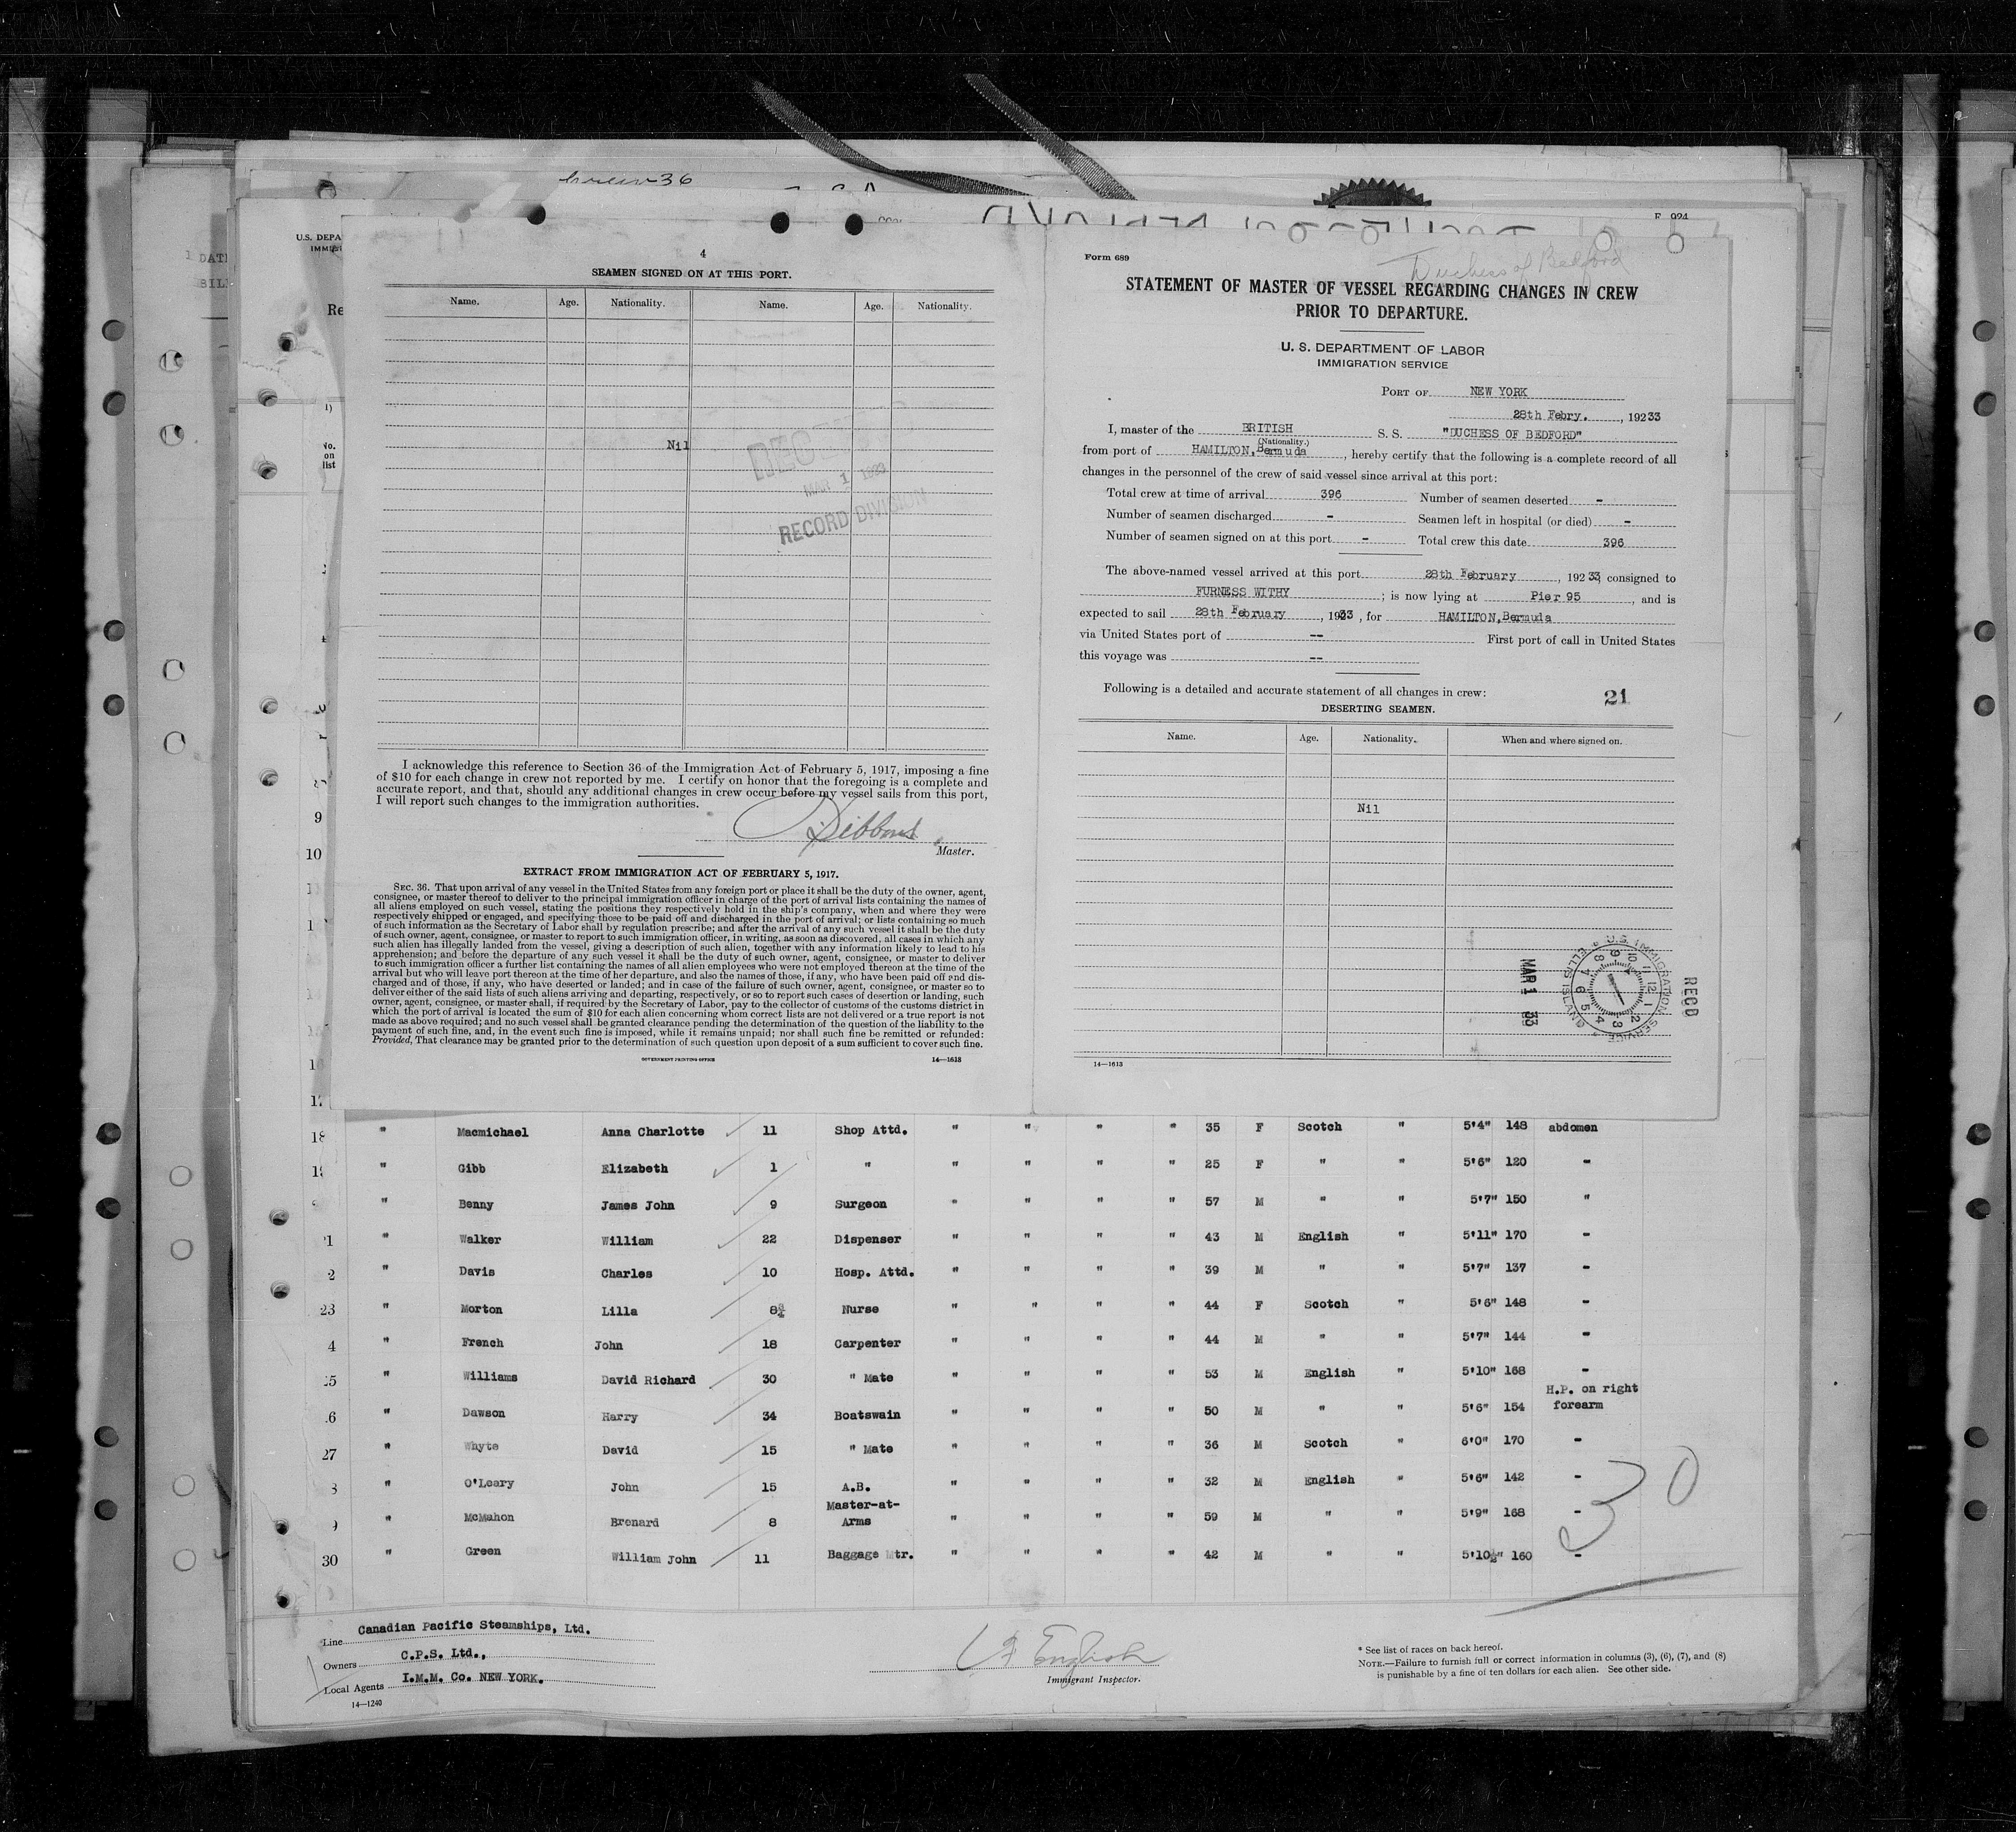 crew 36
F 924
U.S. DEPA
IMMI
DAT
BIL
Re
No.
on
list
4
SEAMEN SIGNED ON AT THIS PORT.
Name. Age. Nationality. Name. Age. Nationality.
Nil
MAR 1
RECORD DIVISION
I acknowledge this reference to Section 36 of the Immigration Act of February 5, 1917, imposing a fine
of $10 for each change in crew not reported by me. I certify on honor that the foregoing is a complete and
accurate report, and that, should any additional changes in crew occur before my vessel sails from this port,
I will report such changes to the immigration authorities.
Master.
EXTRACT FROM IMMIGRATION ACT OF FEBRUARY 5, 1917.
SEC. 36. That upon arrival of any vessel in the United States from any foreign port or place it shall be the duty of the owner, agent,
consignee, or master thereof to deliver to the principal immigration officer in charge of the port of arrival lists containing the names of
all aliens employed on such vessel, stating the positions they respectively hold in the ship's company, when and where they were
respectively shipped or engaged, and specifying those to be paid off and discharged in the port of arrival; or lists containing so much
of such information as the Secretary of Labor shall by regulation prescribe; and after the arrival of any such vessel it shall be the duty
of such owner, agent, consignee, or master to report to such immigration officer, in writing, as soon as discovered, all cases in which any
such alien has illegally landed from the vessel, giving a description of such alien, together with any information likely to lead to his
apprehension; and before the departure of any such vessel it shall be the duty of such owner, agent, consignee, or master to deliver
to such immigration officer a further list containing the names of all alien employees who were not employed thereon at the time of the
arrival but who will leave port thereon at the time of her departure, and also the names of those, if any, who have been paid off and dis-
charged and of those, if any, who have deserted or landed; and in case of the failure of such owner, agent, consignee, or master so to
deliver either of the said lists of such aliens arriving and departing, respectively, or so to report such cases of desertion or landing, such
owner, agent, consignee, or master shall, if required by the Secretary of Labor, pay to the collector of customs of the customs district in
which the port of arrival is located the sum of $10 for each alien concerning whom correct lists are not delivered or a true report is not
made as above required; and no such vessel shall be granted clearance pending the determination of the question of the liability to the
payment of such fine, and, in the event such fine is imposed, while it remains unpaid; nor shall such fine be remitted or refunded:
Provided, That clearance may be granted prior to the determination of such question upon deposit of a sum sufficient to cover such fine.
GOVERNMENT PRINTING OFFICE 14—1613
Form 689
Duchess of Bedford
STATEMENT OF MASTER OF VESSEL REGARDING CHANGES IN CREW
PRIOR TO DEPARTURE.
U. S. DEPARTMENT OF LABOR
IMMIGRATION SERVICE
PORT OF NEW YORK
28th Febry. , 19233
I, master of the BRITISH S. S. "DUCHESS OF BEDFORD"
(Nationality.)
from port of HAMILTON, Bermuda , hereby certify that the following is a complete record of all
changes in the personnel of the crew of said vessel since arrival at this port:
Total crew at time of arrival 396 Number of seamen deserted -
Number of seamen discharged - Seamen left in hospital (or died) -
Number of seamen signed on at this port - Total crew this date 396
The above-named vessel arrived at this port 28th February , 19233, consigned to
FURNESS WITHY ; is now lying at Pier 95 , and is
expected to sail 28th February , 1933 , for HAMILTON, Bermuda
via United States port of -- First port of call in United States
this voyage was --
Following is a detailed and accurate statement of all changes in crew:
21
DESERTING SEAMEN.
Name. Age. Nationality. When and where signed on.
Nil
U.S. IMMIGRATION SERVICE ELLIS ISLAND
MAR 1 33
RECD
14—1613
9
10
18 " Macmichael Anna Charlotte 11 Shop Attd. " " " " 35 F Scotch " 5'4" 148 abdomen
" Gibb Elizabeth 1 " " " " " 25 F " " 5'6" 120 -
" Benny James John 9 Surgeon " " " " 57 M " " 5'7" 150 "
1 " Walker William 22 Dispenser " " " " 43 M English " 5'11" 170 -
2 " Davis Charles 10 Hosp. Attd. " " " " 39 M " " 5'7" 137 -
23 " Morton Lilla 8¾ Nurse " " " " 44 F Scotch " 5'6" 148 -
4 " French John 18 Carpenter " " " " 44 M " " 5'7" 144 -
25 " Williams David Richard 30 " Mate " " " " 53 M English " 5'10" 168 -
6 " Dawson Harry 34 Boatswain " " " " 50 M " " 5'6" 154 H.P. on right forearm
27 " Whyte David 15 " Mate " " " " 36 M Scotch " 6'0" 170 -
8 " O'Leary John 15 A.B. " " " " 32 M English " 5'6" 142 -
9 " McMahon Brenard 8 Master-at-Arms " " " " 59 M " " 5'9" 168 -
30 " Green William John 11 Baggage Mtr. " " " " 42 M " " 5'10½" 160 -
30
Line Canadian Pacific Steamships, Ltd.
Owners C.P.S. Ltd.,
Local Agents I.M.M. Co. NEW YORK.
14—1240
English
Immigrant Inspector.
* See list of races on back hereof.
NOTE.—Failure to furnish full or correct information in columns (3), (6), (7), and (8)
is punishable by a fine of ten dollars for each alien. See other side.